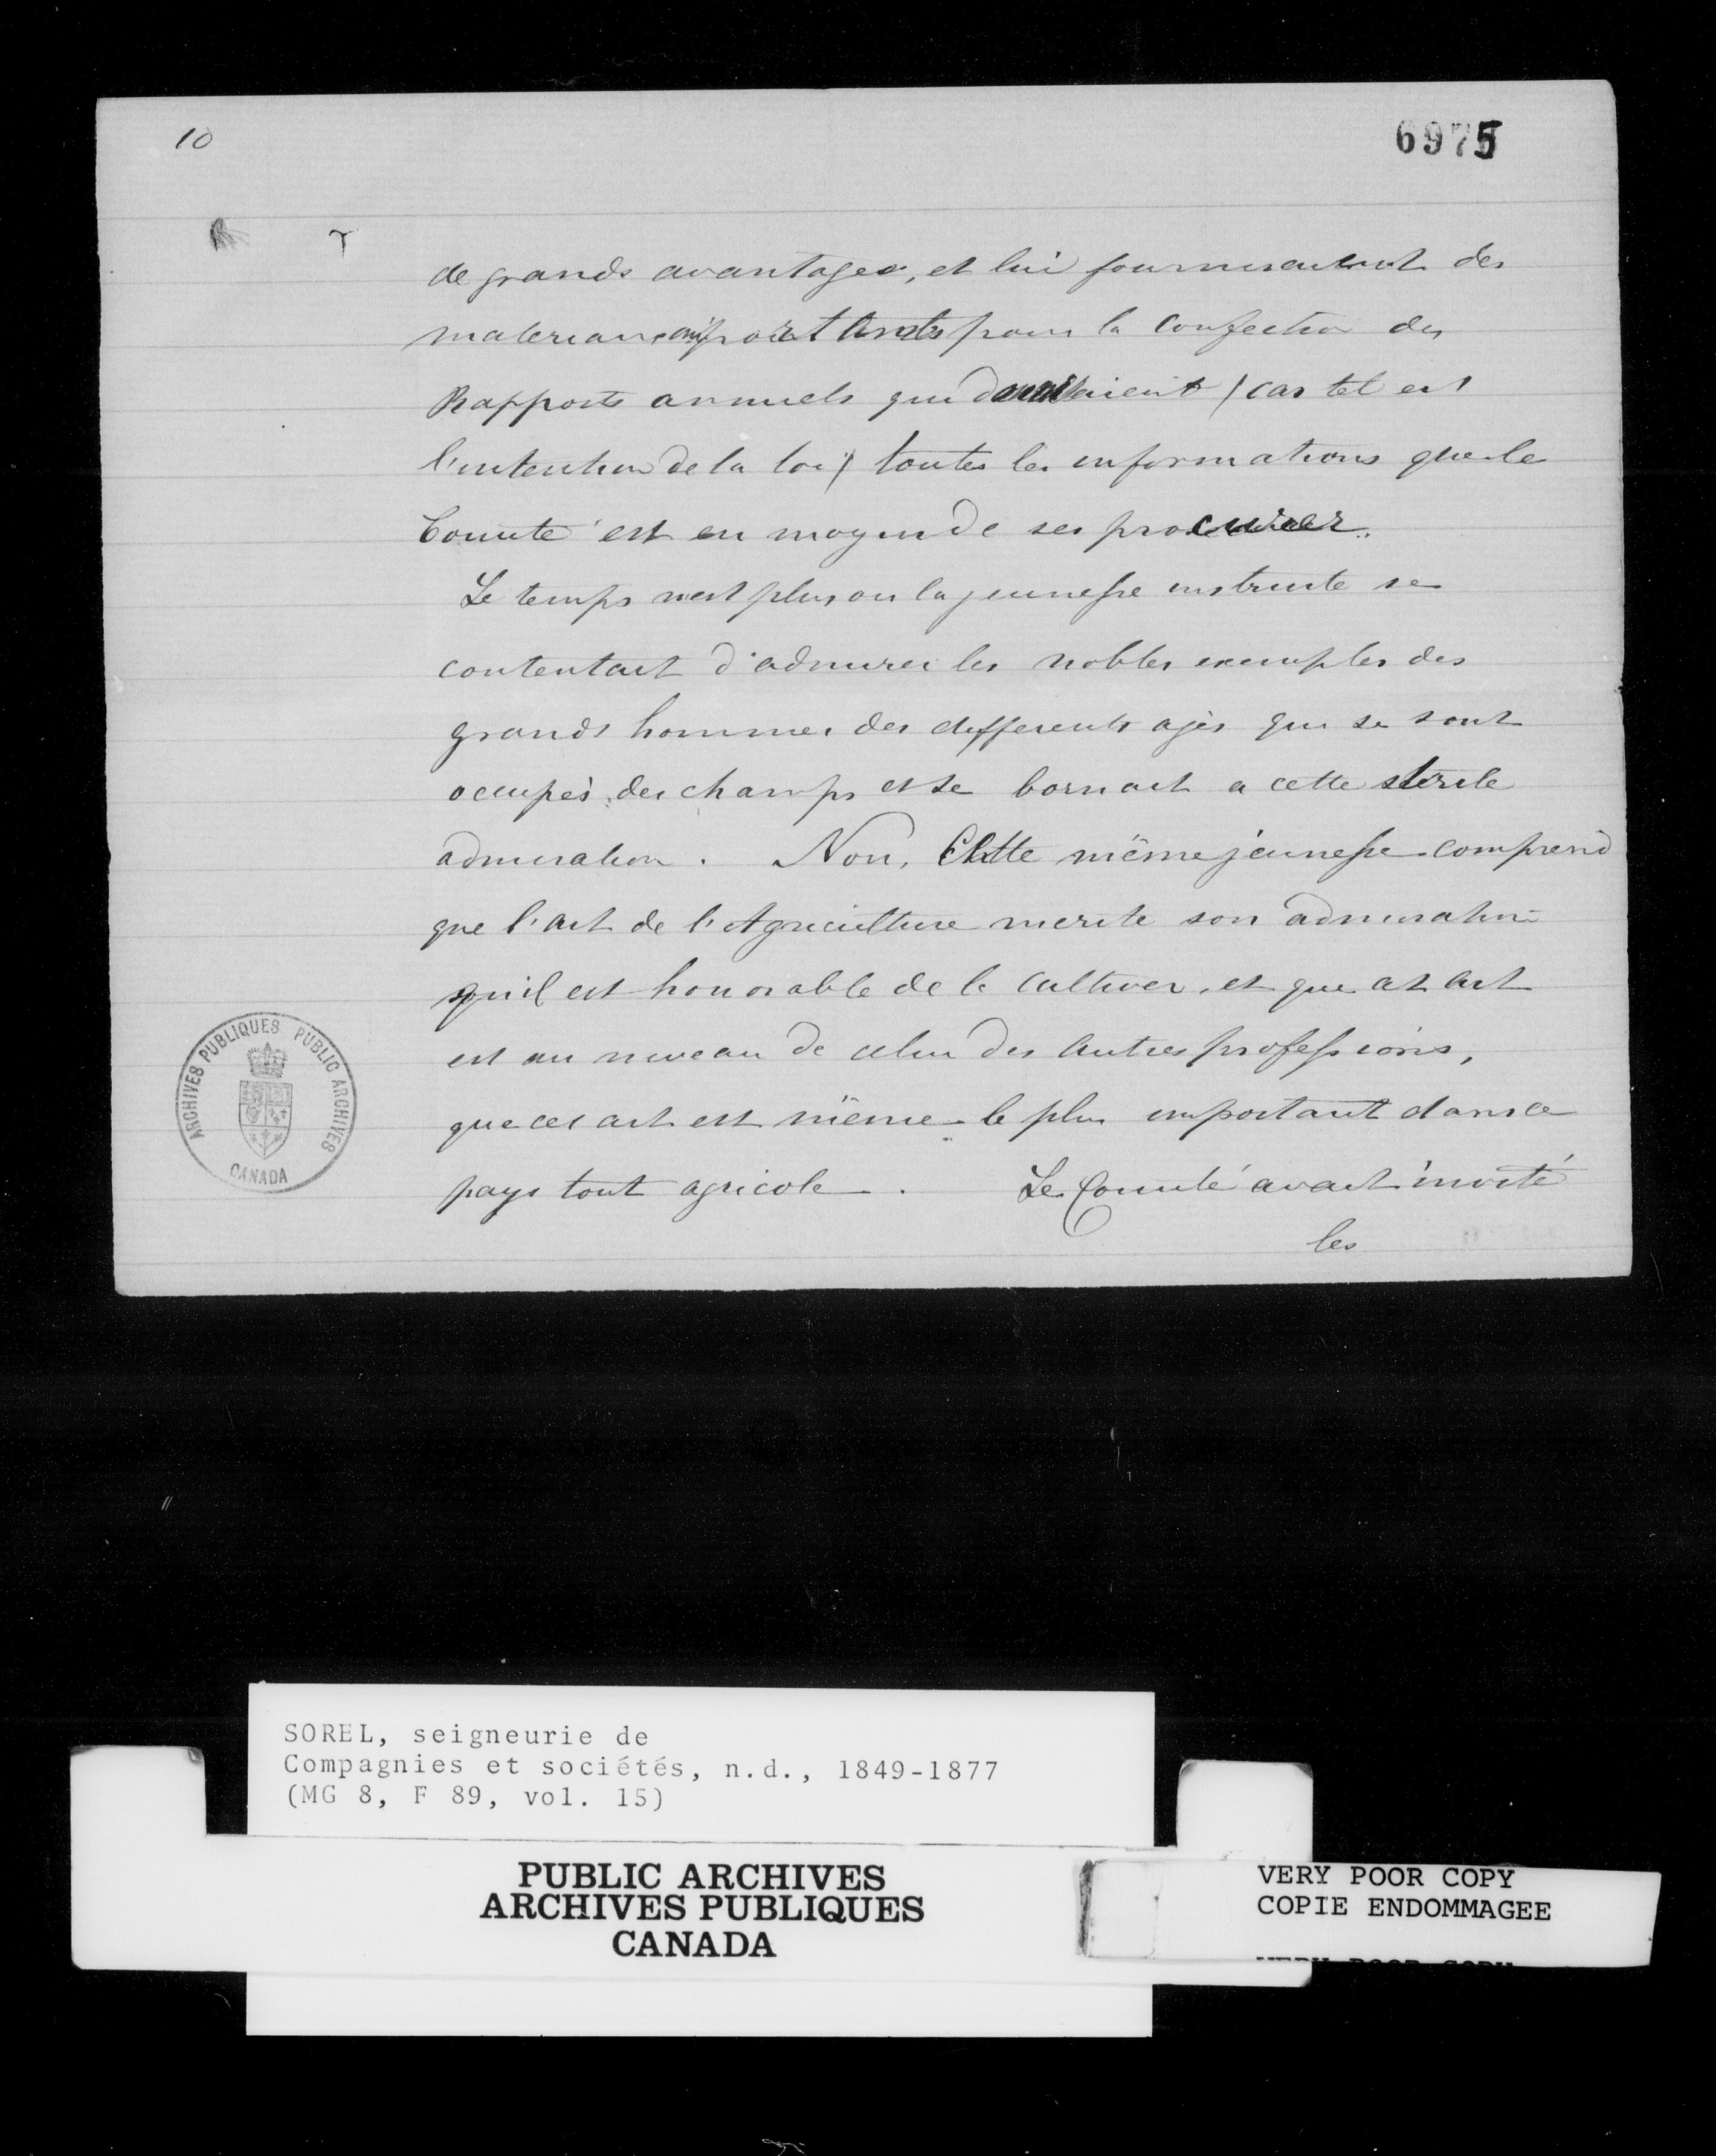 10
6975
de grands avantages, et lui fourniraient des
materiaux importants pour la Confection des
Rapports annuels qui (car tel est
l'intention de la loi) toutes les informations que le
Comité est en moyen de ses procurer.
Le temps n'est plus ou la jeunesse instruite se
contentait d'admirer les nobles exemples des
grands hommes des differents agès qui se sont
occupès des champs et se bornait a cette stérile
admiration. Non, Cette même jeunesse comprend
que l'art de l'Agriculture merite son admiration
qu'il est honorable de le cultiver, et que cet art
est au niveau de celui des autres professions,
que cet art est même le plus important dans ce
pays tout agricole. Le Comité avait invité
les
ARCHIVES PUBLIQUES PUBLIC ARCHIVES
CANADA
SOREL, seigneurie de
Compagnies et sociétés, n.d., 1849-1877
(MG 8, F 89, vol. 15)
PUBLIC ARCHIVES
ARCHIVES PUBLIQUES
CANADA
VERY POOR COPY
COPIE ENDOMMAGEE
VERY POOR COPY